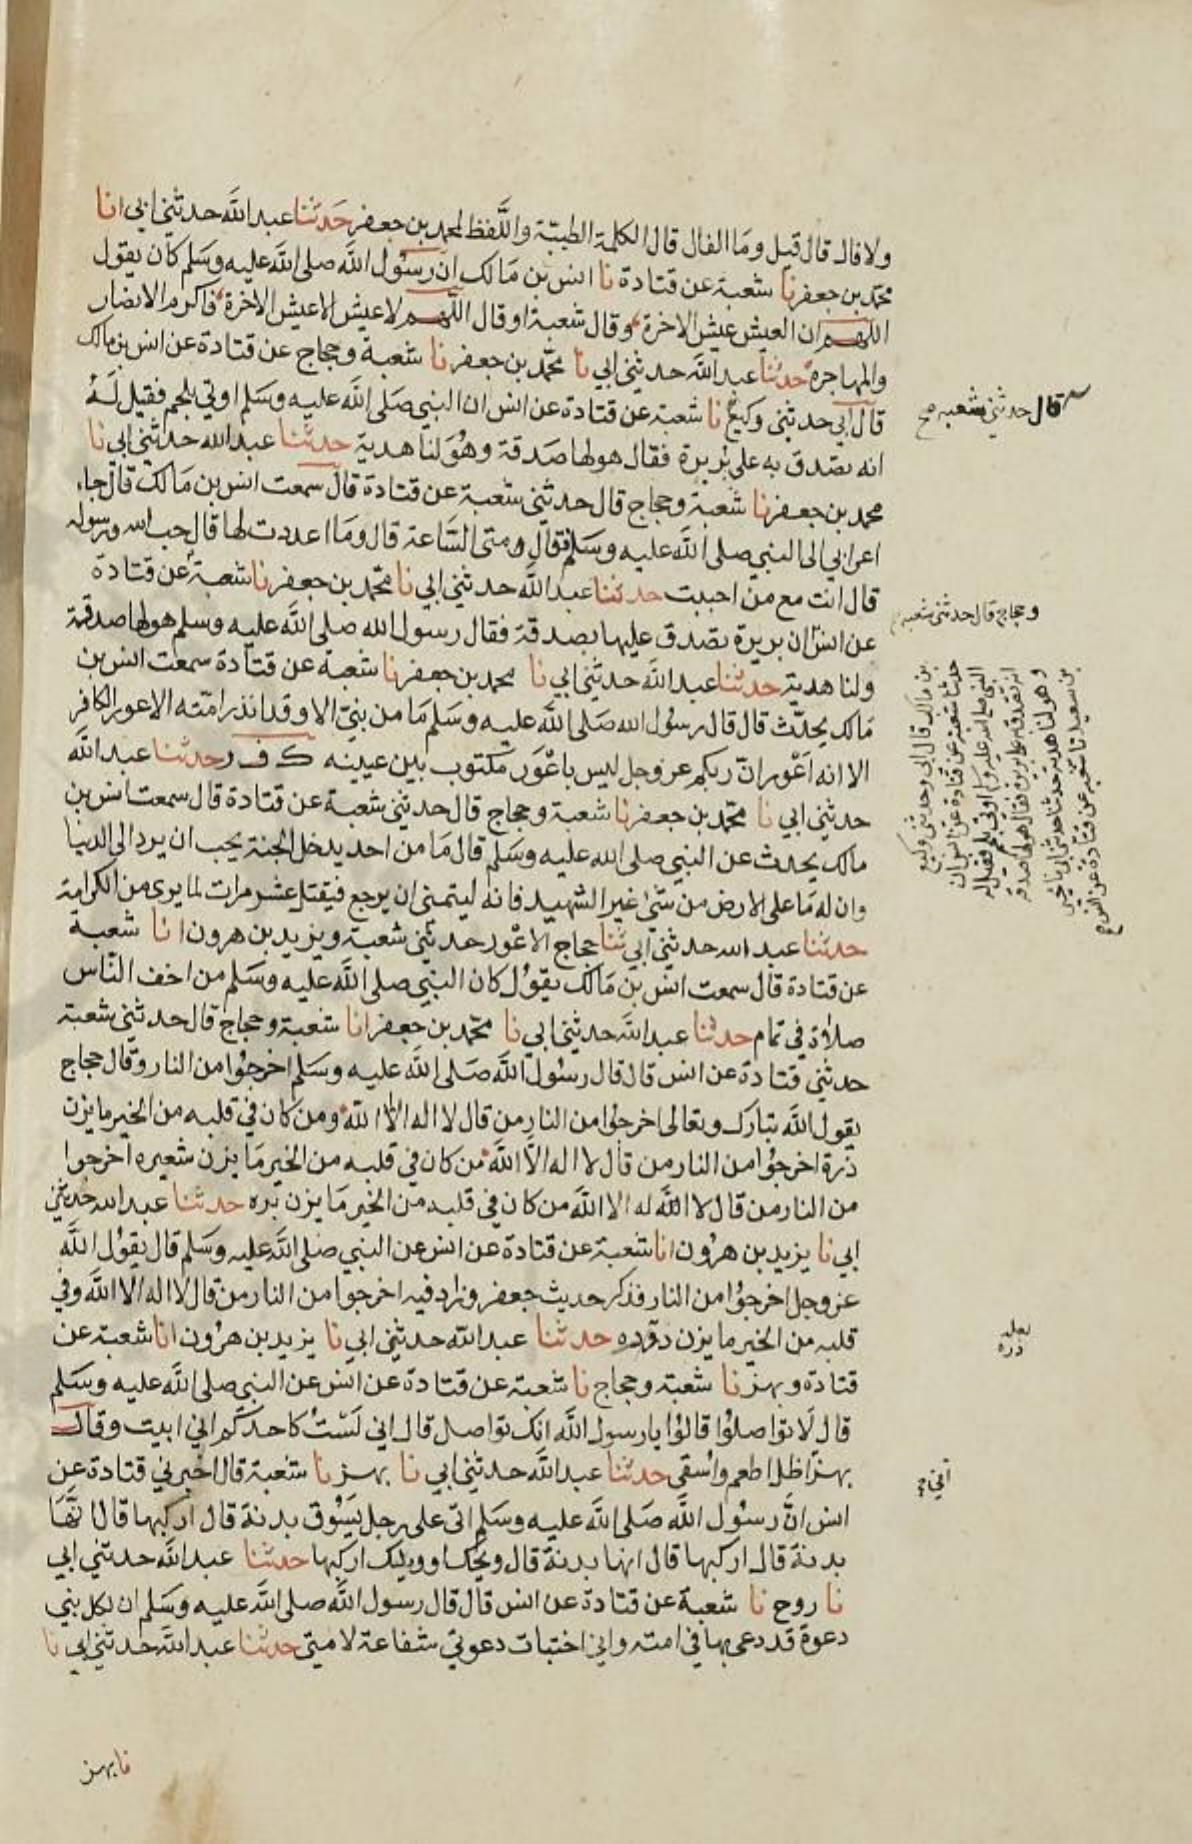 ولا فال قال قيل وما الفال قال الكلمة الطيبة واللفظ لمحمد بن جعفر حدثنا عبد الله حدثني ابي انا
محمد بن جعفر نا شعبة عن قتادة نا انس بن مالك ان رسول الله صلى الله عليه وسلم كان يقول
اللهم ان العيش عيش الاخرة وقال شعبة او قال اللهم لا عيش الا عيش الاخرة فاكرم الانصار
والمهاجره حدثنا عبد الله حدثني ابي نا محمد بن جعفر نا شعبة وحجاج عن قتادة عن انس بن مالك
قال ابي حدثني وكيع نا شعبة عن قتادة عن انس ان النبي صلى الله عليه وسلم اوتي بلحم فقيل له
انه تصدق به على بريرة فقال هو لها صدقة وهو لنا هدية حدثنا عبد الله حدثني ابي نا
محمد بن جعفر نا شعبة وحجاج قال حدثني شعبة عن قتادة قال سمعت انس بن مالك قال جاء
اعرابي الى النبي صلى الله عليه وسلم فقال ومتى الساعة قال وما اعددت لها قال حب الله ورسوله
قال انت مع من احببت حدثنا عبد الله حدثني ابي نا محمد بن جعفر نا شعبة عن قتادة
عن انس ان بريرة تصدق عليها بصدقة فقال رسول الله صلى الله عليه وسلم هو لها صدقة
ولنا هدية حدثنا عبد الله حدثني ابي نا محمد بن جعفر نا شعبة عن قتادة سمعت انس بن
مالك يحدث قال قال رسول الله صلى الله عليه وسلم ما من نبي الا وقد انذر امته الاعور الكافر
الا انه اعور ان ربكم عز وجل ليس باعور مكتوب بين عينيه ك ف ر حدثنا عبد الله
حدثني ابي نا محمد بن جعفر نا شعبة وحجاج قال حدثني شعبة عن قتادة قال سمعت انس بن
مالك يحدث عن النبي صلى الله عليه وسلم قال ما من احد يدخل الجنة يحب ان يرد الى الدنيا
وان له ما على الارض من شئ غير الشهيد فانه ليتمنى ان يرجع فيقتل عشر مرات لما يرى من الكرامة
حدثنا عبد الله حدثني ابي ثنا حجاج الاعور حدثني شعبة ويزيد بن هرون انا شعبة
عن قتادة قال سمعت انس بن مالك يقول كان النبي صلى الله عليه وسلم من اخف الناس
صلاة في تمام حدثنا عبد الله حدثني ابي نا محمد بن جعفر انا شعبة وحجاج قال حدثني شعبة
حدثني قتادة عن انس قال قال رسول الله صلى الله عليه وسلم اخرجوا من النار وقال حجاج
يقول الله تبارك وتعالى اخرجوا من النار من قال لا اله الا الله ومن كان في قلبه من الخير ما يزن
ذرة اخرجوا من النار من قال لا اله الا الله من كان في قلبه من الخير ما يزن شعيره اخرجوا
من النار من قال لا الله له الا الله من كان في قلبه من الخير ما يزن بره حدثنا عبد الله حدثني
ابي نا يزيد بن هرون انا شعبة عن قتادة عن انس عن النبي صلى الله عليه وسلم قال يقول الله
عز وجل اخرجوا من النار فذكر حديث جعفر وزاد فيه اخرجوا من النار من قال لا اله الا الله وفي
قلبه من الخير ما يزن دوده حدثنا عبد الله حدثني ابي نا يزيد بن هرون انا شعبة عن
قتادة وبهز نا شعبة وحجاج نا شعبة عن قتادة عن انس عن النبي صلى الله عليه وسلم
قال لا تواصلوا قالوا يا رسول الله انك تواصل قال اني لست كاحدكم اني ابيت وقال
بهز اظل اطعم واسقى حدثنا عبد الله حدثني ابي نا بهز نا شعبة قال اخبرني قتادة عن
انس ان رسول الله صلى الله عليه وسلم اتى على رجل يسوق بدنة قال اركبها قال انها
بدنة قال اركبها قال انها بدنة قال ويحك او ويلك اركبها حدثنا عبد الله حدثني ابي
نا روح نا شعبة عن قتادة عن انس قال قال رسول الله صلى الله عليه وسلم ان لكل نبي
دعوة قد دعى بها في امته واني اختبات دعوتي شفاعة لامتي حدثنا عبد الله حدثني ابي نا
نا بهز
قال حدثني شعبه صح
وحجاج قال حدثني شعبه
بن مالك قال ابي وحدثني وكيع
حدثنا شعبة عن قتادة عن انس ان
النبي صلى الله عليه وسلم اوتي بلحم فقيل له
انه تصدق به على بريرة فقال هو لها صدقه
وهو لنا هدية حدثنا حدثني ابي نا يحيى
بن سعيد نا شعبه عن قتادة عن انس صح
لعله
ذره